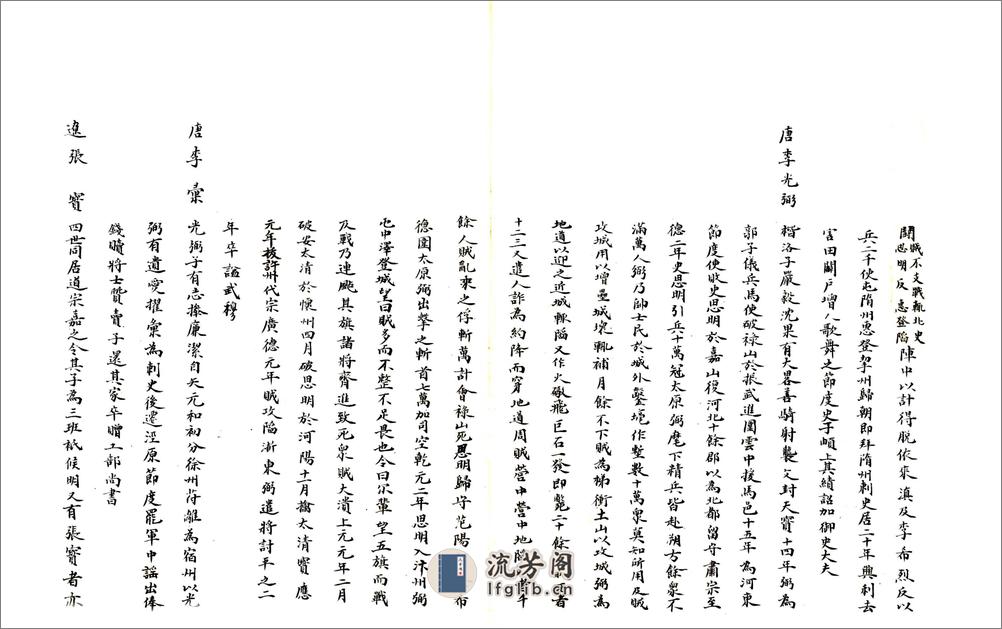 關賊不支戰輒北史
思明反惠登陷
陣中以計得脫依來瑱及李希烈反以
兵二千使屯隋州惠登挈州歸朝即拜隋州刺史居二十年興利去
害田闢戶增人歌舞之節度史于頔上其績詔加御史大夫
唐李光弼
楷洛子嚴毅沈果有大畧善騎射襲父封天寶十四年弼為
郭子儀兵馬使破祿山於振武進圍雲中拔馬邑十五年為河東
節度使敗史思明於嘉山復河北十餘郡以為北都留守肅宗至
德二年史思明引兵十萬冦太原弼麾下精兵皆赴朔方餘衆不
滿萬人弼乃帥士民於城外鑿壕作墼數十萬衆莫知所用及賊
攻城用以增壘城壞輒補月餘不下賊為梯衝土山以攻城弼為
地道以迎之近城輒陷又作大礮飛巨石一發即斃二十餘
十二三又遣人詐為約降而穿地道周賊營中營中地陷
餘人賊亂乘之俘斬萬計會祿山死思明歸守范陽
德圍太原弼出擊之斬首七萬加司空乾元二年思明入汴州弼
屯中潬登城望曰賊多而不整不足畏也令曰尔輩望五旗而戰
及戰乃連颭其旗諸將齊進致死衆賊大潰上元元年二月
破安太清於懷州四月破思明於河陽十一月擒太清寶應
元年拔許州代宗廣德元年賊攻陷浙東弼遣將討平之二
年卒諡武穆
唐李彙
光弼子有志操廉潔自矢元和初分徐州苻離為宿州以光
弼有遺愛擢彙為刺史後遷涇原節度罷軍中謡出俸
錢贖將士質賣子還其家卒贈工部尚書
進張寶
四世同居道宗嘉之令其子為三班祗候明又有張寶者亦
流芳阁
lfglib.cn